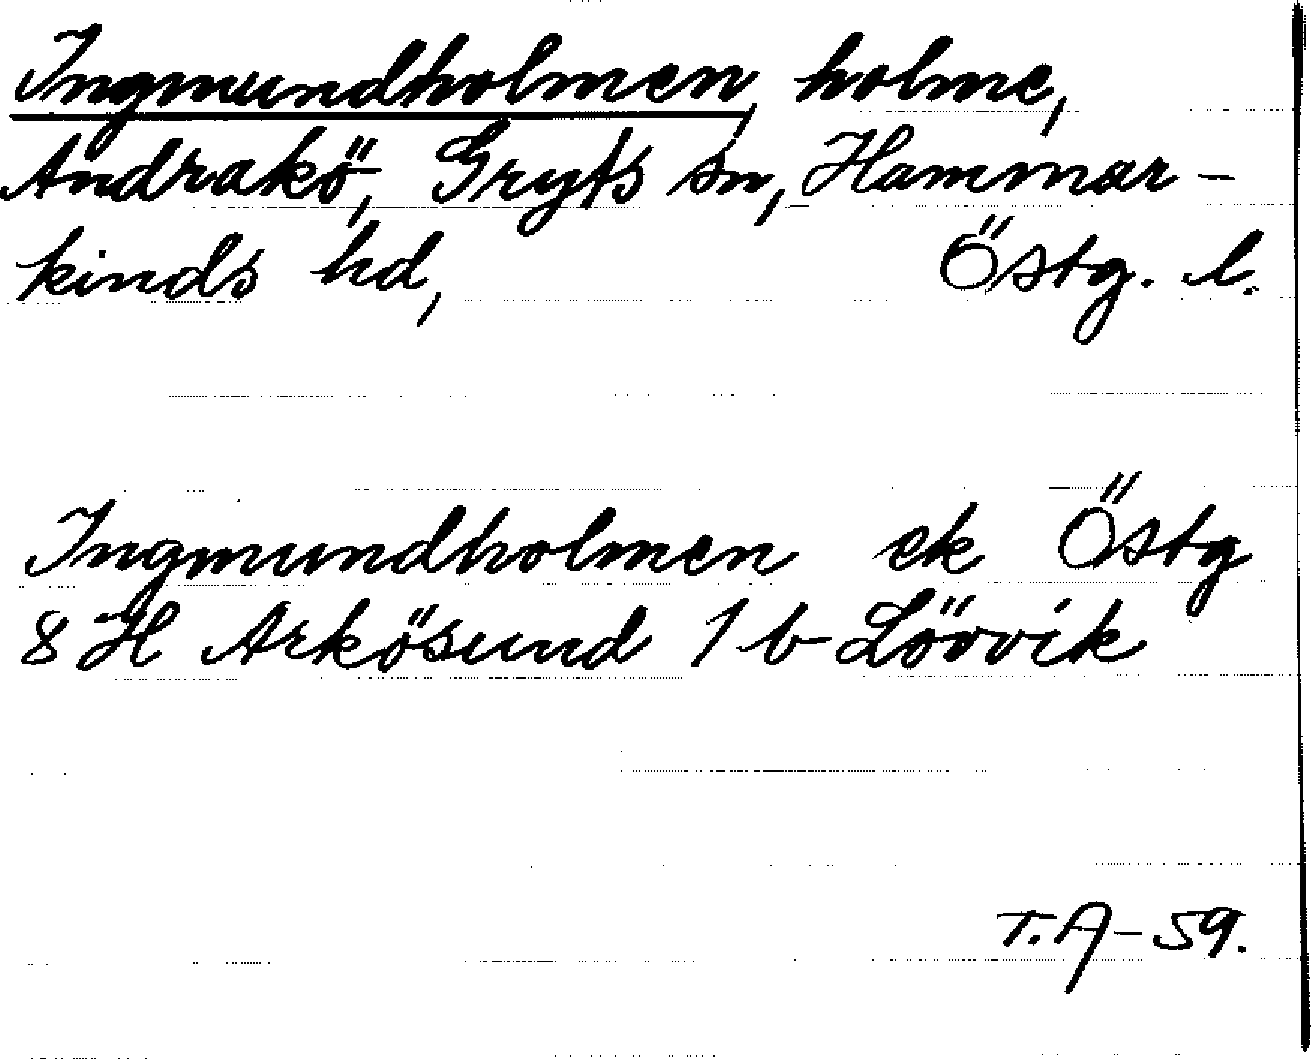 Ingmundholmen, holme,
Andrakö, Gryts sn, Hammar-
kinds hd, Östg. l.
Ingmundholmen ek Östg
8 H Arkösund 1 b Lövvik
T.A-59.